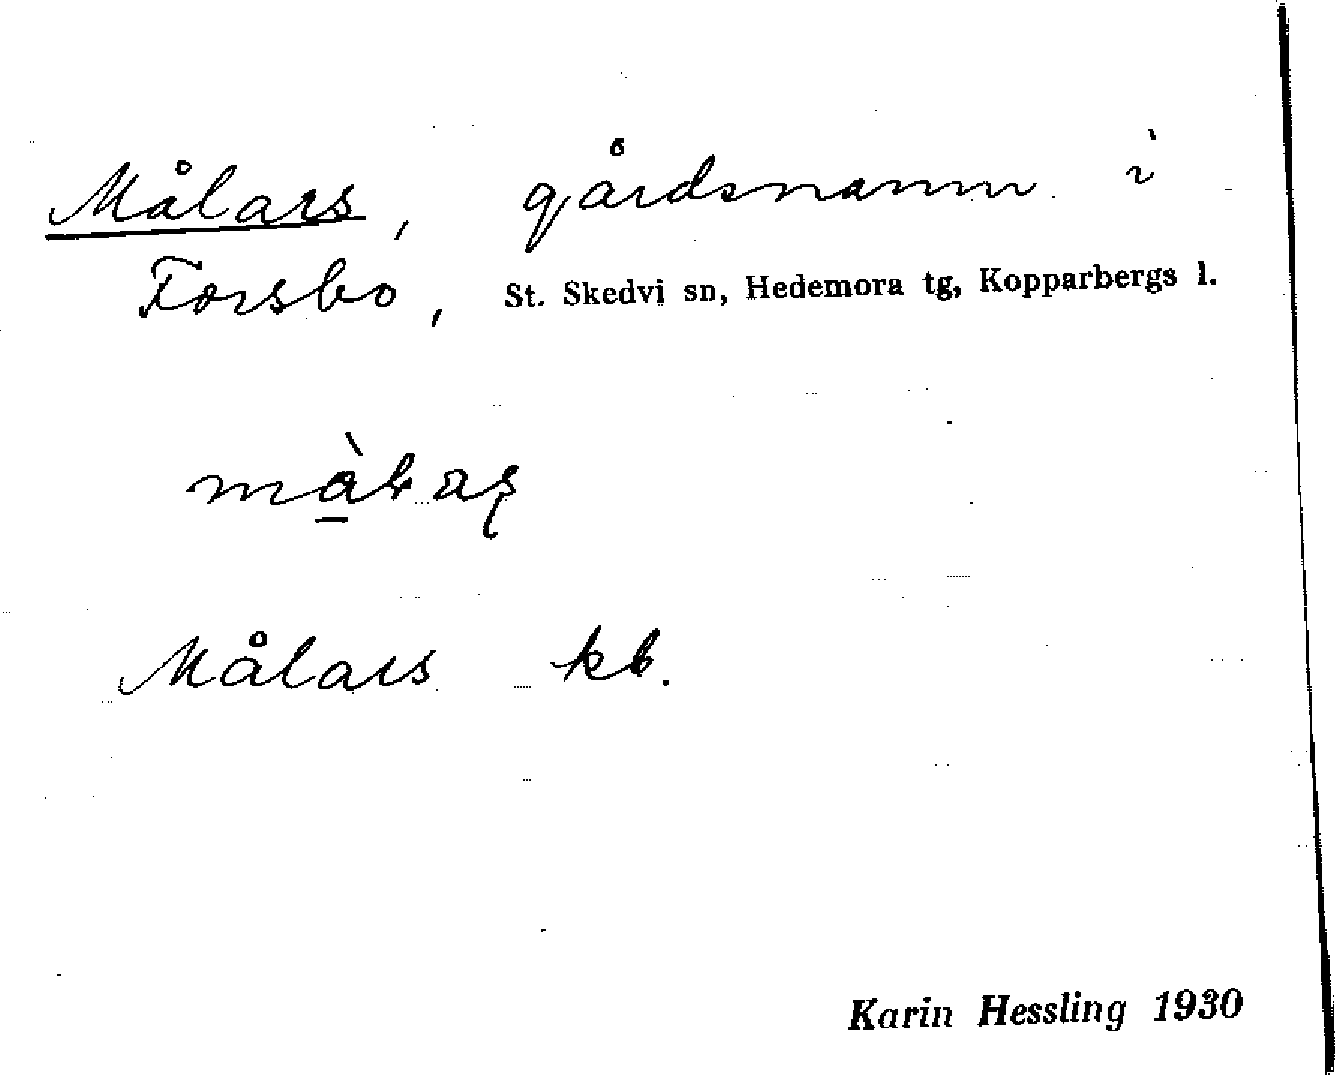 Målars, gårdsnamn i
Forsbo, St. Skedvi sn, Hedemora tg, Kopparbergs l.
Målars kb.
Karin Hessling 1930